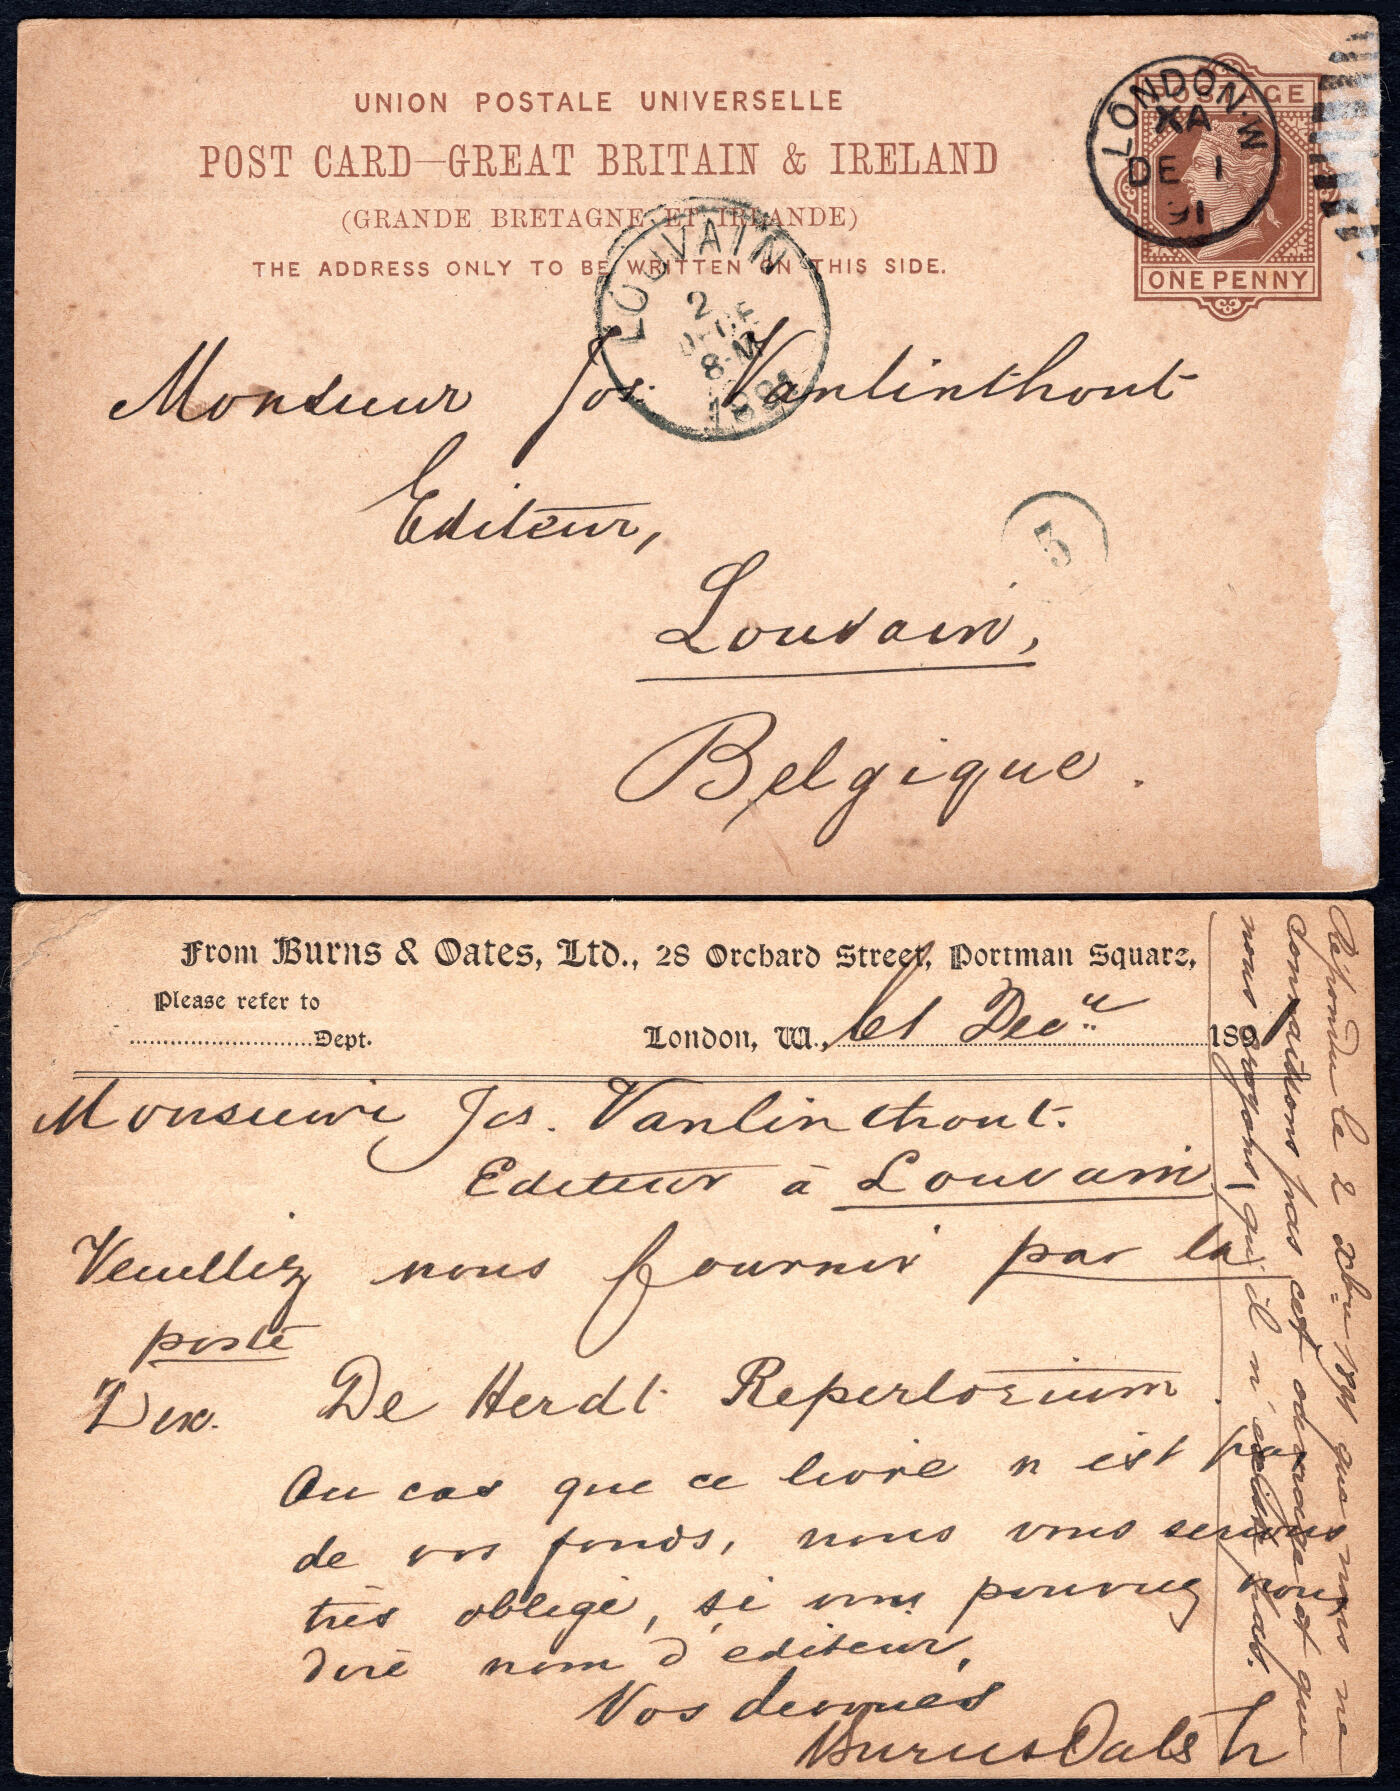 UNION POSTALE UNIVERSELLE
POST CARD—GREAT BRITAIN & IRELAND
(GRANDE BRETAGNE ET IRLANDE)
THE ADDRESS ONLY TO BE WRITTEN ON THIS SIDE.
POSTAGE
ONE PENNY
LONDON·W
XA
DE 1
91
LOUVAIN
2
DECE
8-M
1891
Monsieur Jos. Vanlinthout
Editeur,
3
Louvain,
Belgique.
From Burns & Oates, Ltd., 28 Orchard Street, Portman Square,
Please refer to
Dept.
London, W., le 1 Decr. 1891
Monsieur Jos. Vanlinthout.
Editeur à Louvain
Veuillez nous fournir par la
poste
De Herdt Repertorium.
Au cas que ce livre n'est pas
de vos fonds, nous vous serions
très obligé, si vous pouvez nous
dire nom d'editeur,
Vos devoués
Burns Oates
Répondu le 2 Xbre 1891 que nous ne
connaissons pas cet ouvrage et que
nous croyons, qu'il n'existe pas.